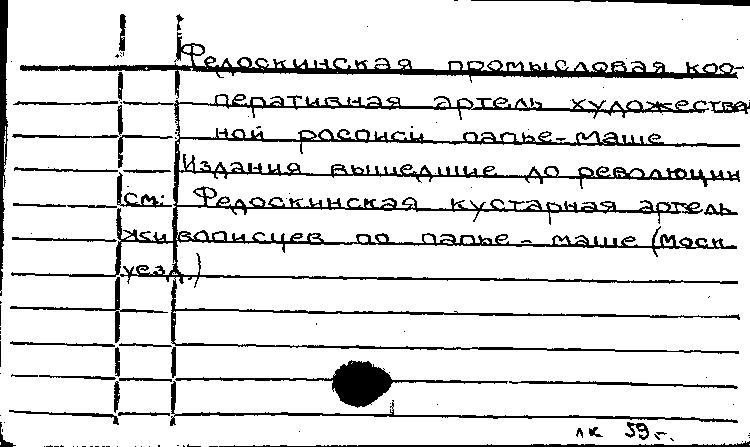 Федоскинская промысловая коо-
перативная артель художествен
ной росписи папье-маше
Издания вышедшие до революции
см: Федоскинская кустарная артель
живописцев по папье-маше (Моск.
уезд.)
лк 59 г.